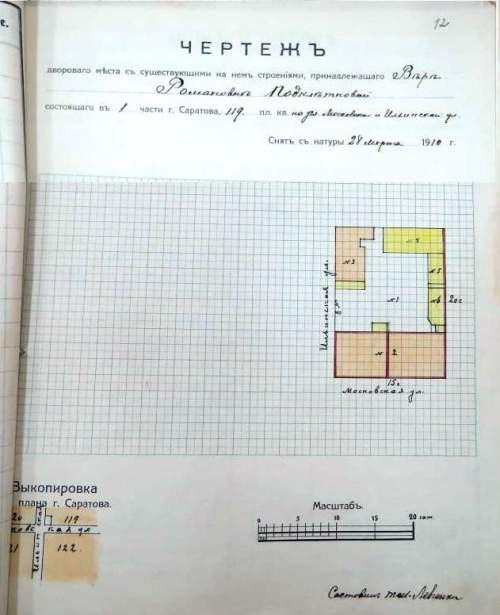 12
ЧЕРТЕЖЪ
двороваго мѣста съ существующими на немъ строеніями, принадлежащаго Вѣрѣ
Романовнѣ
состоящаго въ 1 части г. Саратова, 119 пл. кв. на уг. Московской и Ильинской ул.
Снятъ съ натуры 28 марта 1910 г.
№3
№4
№5
№6
№1
20 с
Ильинская ул.
№ 2
15 с
Московская ул.
Выкопировка
плана г. Саратова.
20
119
122
Масштабъ.
0 5 10 15 20 саж.
Составилъ